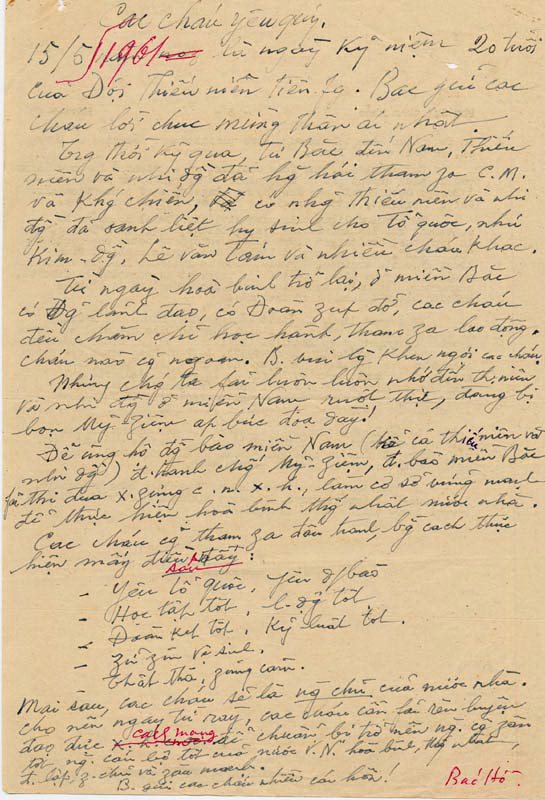 Các cháu yêu quý,
15/5 1961 là ngày kỷ niệm 20 tuổi
của Đội thiếu niên tiền fg. Bác gửi các
cháu lời chúc mừng thân ái nhất.
Trg thời kỳ qua, từ Bắc đến Nam, thiếu
niên và nhi đg đã hg hái tham za C.M.
và Khg chiến, có nhg thiếu niên và nhi
đg đã oanh liệt hy sinh cho tổ quốc, như
Kim-đg, Lê văn Tám và nhiều cháu khác.
Từ ngày hoà bình trở lại, ở miền Bắc
có Đg lãnh đạo, có Đoàn zúp đỡ, các cháu
đều chăm chỉ học hành, tham za lao động.
cháu nào cg ngoan. B. vui lg khen ngợi các cháu.
Nhưng chg ta fải luôn luôn nhớ đến th. niên
và nhi đg ở miền Nam ruột thịt, đang bị
bọn Mỹ-Ziệm áp bức đoạ đày!
Để ủng hộ đg bào miền Nam (kể cả thiếu niên và
nhi đg) đ. tranh chg Mỹ-Ziệm, đ. bào miền Bắc
fải thi đua x. zựng c. n. x. h., làm cơ sở vững mạnh
để thực hiện hoà bình thg nhất nước nhà.
Các cháu cg tham za đấu tranh, bg cách thực
hiện mấy điều sau đây:
- Yêu tổ quốc, yêu đ/bào
- Học tập tốt, l-độg tốt
- Đoàn kết tốt, kỷ luật tốt.
- Zữ zìn vệ sinh.
- Thật thà, zũng cảm.
Mai sau, các cháu sẽ là ng chủ của nước nhà.
cho nên ngay từ rày, các cháu cần fải rèn luyện
đạo đức cách mạng để chuẩn bị trở nên ng. cg zân
tốt, ng. cán bộ tốt của nước V.N. hoà bình, thg nhất,
đ. lập, z. chủ và zàu mạnh.
B. gửi các cháu nhiều cái hôn!
Bác Hồ.